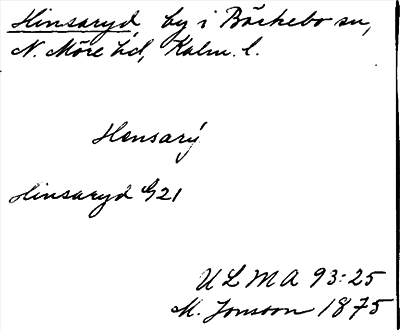 Hinsaryd, by i Bäckebo sn,
N. Möre hd, Kalm. l.
Hensarý
Hinsaryd G21
ULMA 93:25
M. Jonsson 1875